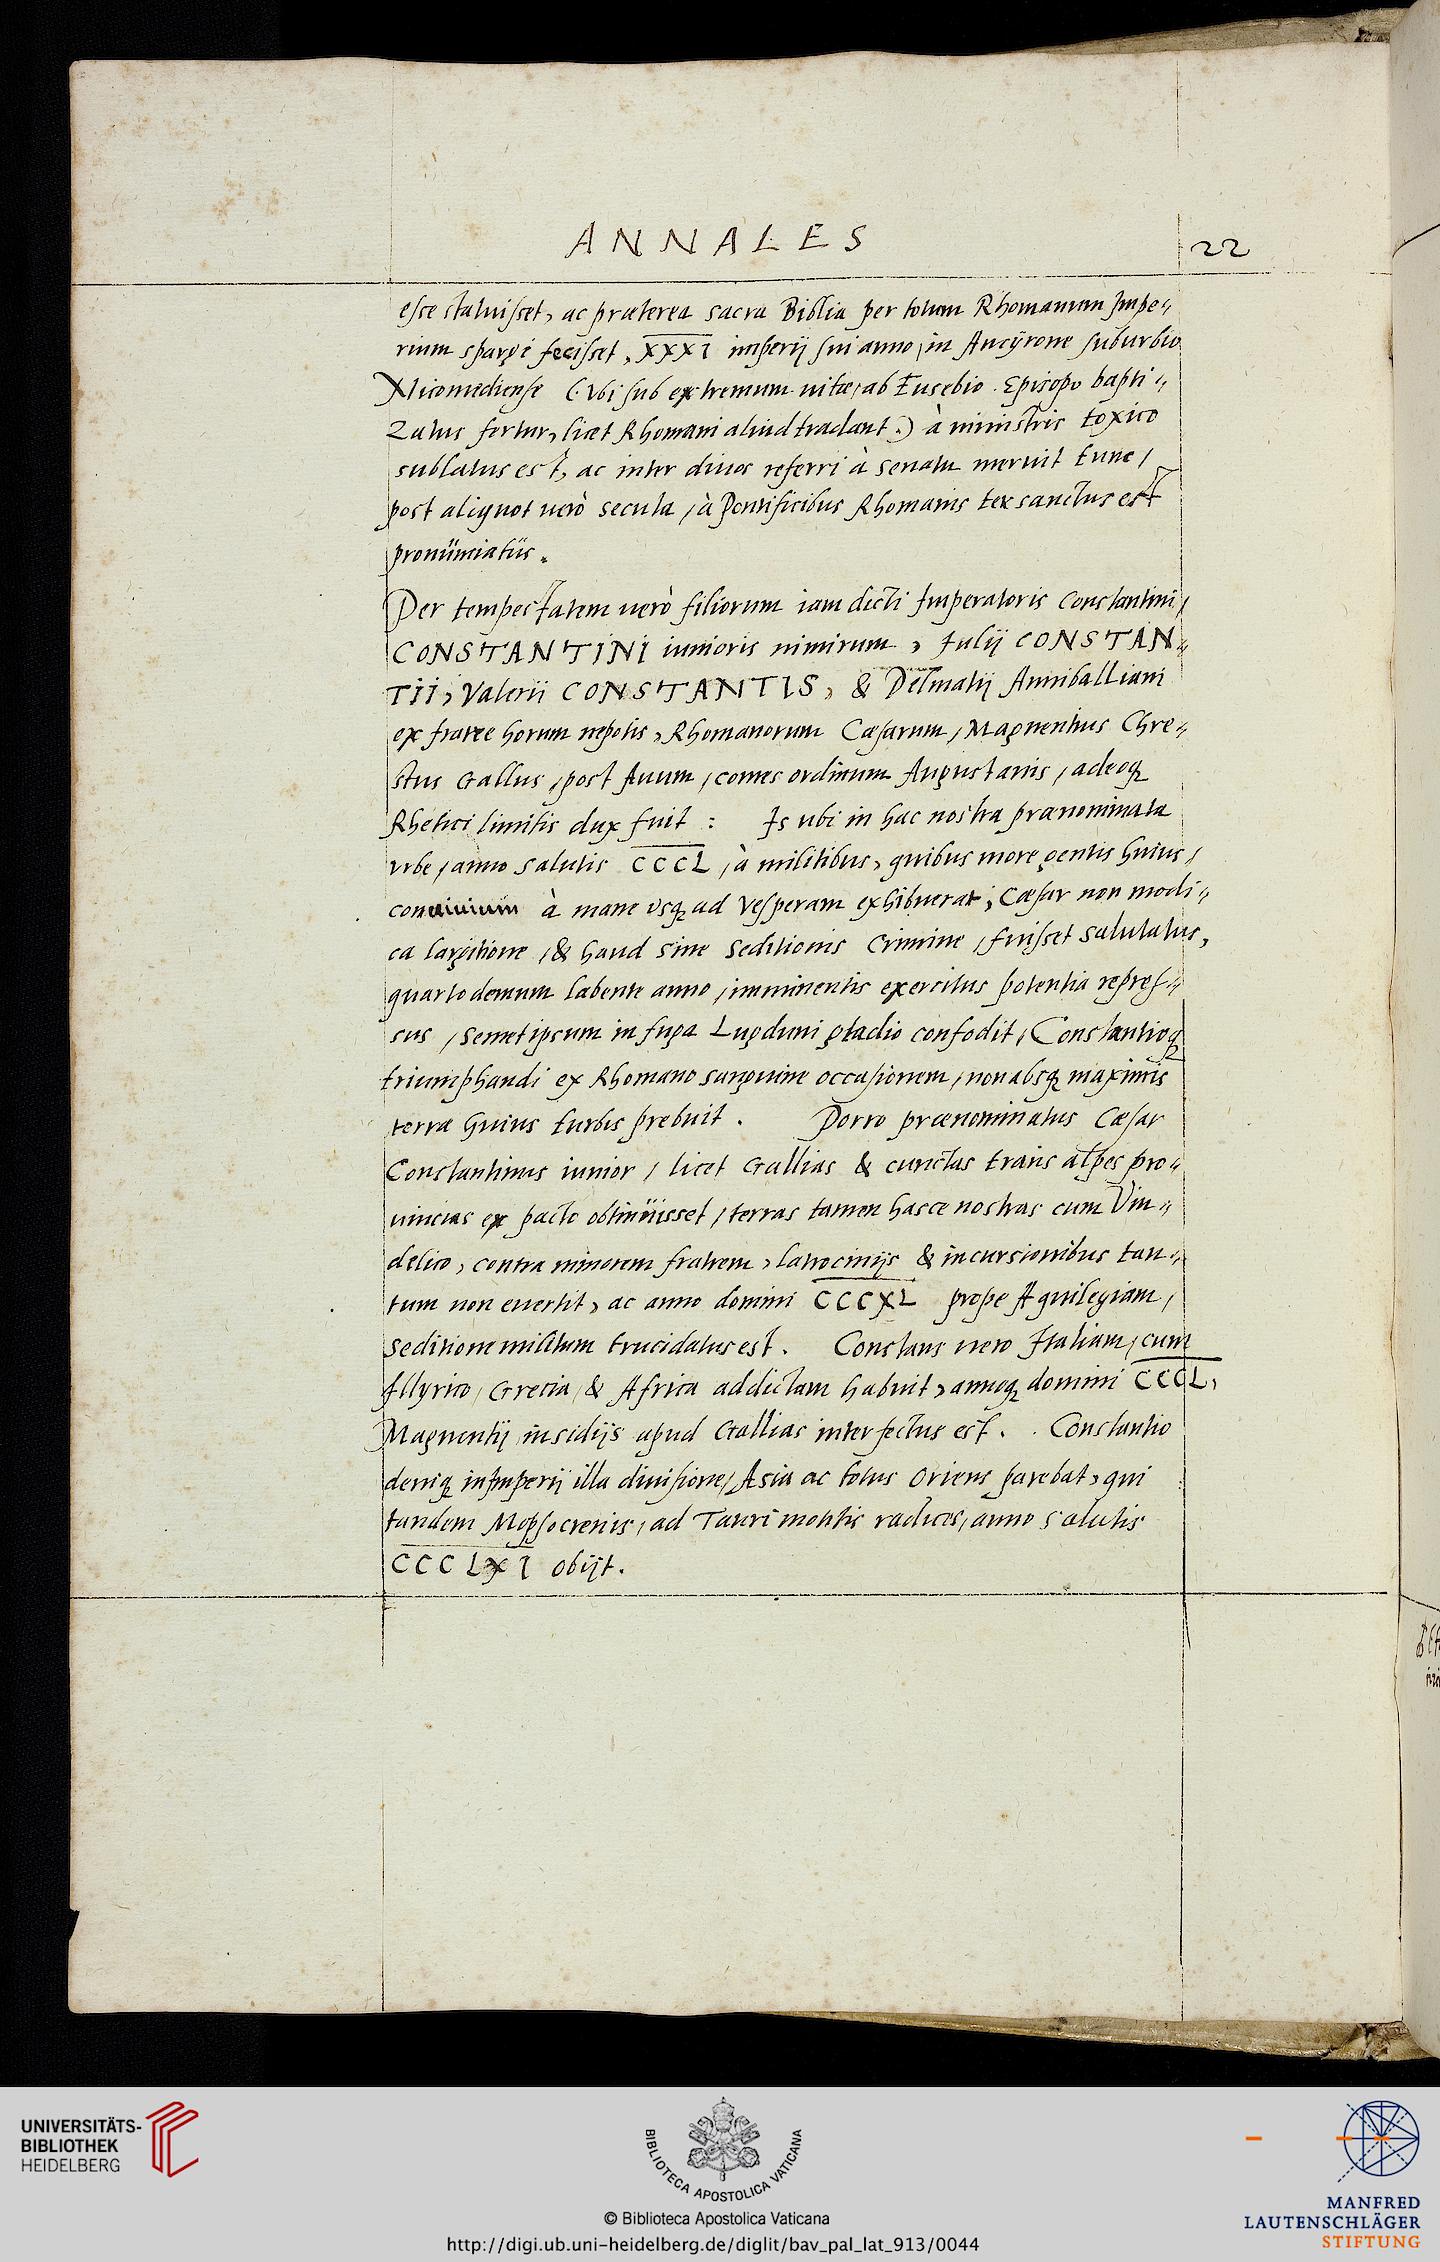 ANNALES
22
esse statuisset, ac præterea sacra Biblia per totum Rhomanum Impe„
rium spargi fecisset, XXXI imperij sui anno, in Ancÿrone suburbio
Nicomediense (Vbi sub extremum uitæ, ab Eusebio Episopo bapti„
Zatus fertur, licet Rhomani aliud tradant.) à ministris toxico
sublatus est, ac inter diuos referri à senatu meruit tunc,
post aliquot uerò secula, à Pontificibus Rhomanis ter sanctus est
pronŭnciatŭs.
Per tempestatem uerò filiorum iam dicti Imperatoris Constantini,
CONSTANTINI iunioris nimirum, Iulij CONSTAN„
TII, Valerii CONSTANTIS, & Delmatij Anniballiani
ex fratre horum nepotis, Rhomanorum Cæsarum, Magnentius Chre„
stus Gallus, post Auum, comes ordinum Augustanis, adeoq
Rhetici limitis dux fuit : Is ubi in hac nostra prænominata
vrbe, anno salutis CCCL, à militibus, quibus more gentis huius,
conuiuium à mane vsq ad vesperam exhibuerat, Cæsar non modi„
ca largitione, & haud sine seditionis crimine, fuisset salutatus,
quarto demum labente anno, imminentis exercitus potentia repres„
sus, semetipsum in fuga Lugduni gladio confodit, Constantioq
triumphandi ex Rhomano sanguine occasionem, non absq maximis
terræ huius turbis prebuit. Porro prænominatus Cæsar
Constantinus iunior, licet Gallias & cunctas trans alpes pro„
uincias ex pacto obtinŭisset, terras tamen hasce nostras cum Vin„
delico, contra minorem fratrem, latrocinijs & incursionibus tan„
tum non euertit, ac anno domini CCCXL prope Aquilegiam,
seditione militum trucidatus est. Constans uero Italiam, cum
Illyrico, Grecia, & Africa addictam habuit, annoq domini CCCL,
Magnentij insidijs apud Gallias interfectus est. Constantio
deniq in Imperij illa diuisione, Asia ac totus Oriens parebat, qui
tandem Mopsocrenis, ad Tauri montis radices, anno salutis
CCCLXI obijt.
UNIVERSITÄTS-
BIBLIOTHEK
HEIDELBERG
BIBLIOTECA APOSTOLICA VATICANA
© Biblioteca Apostolica Vaticana
http://digi.ub.uni-heidelberg.de/diglit/bav_pal_lat_913/0044
MANFRED
LAUTENSCHLÄGER
STIFTUNG